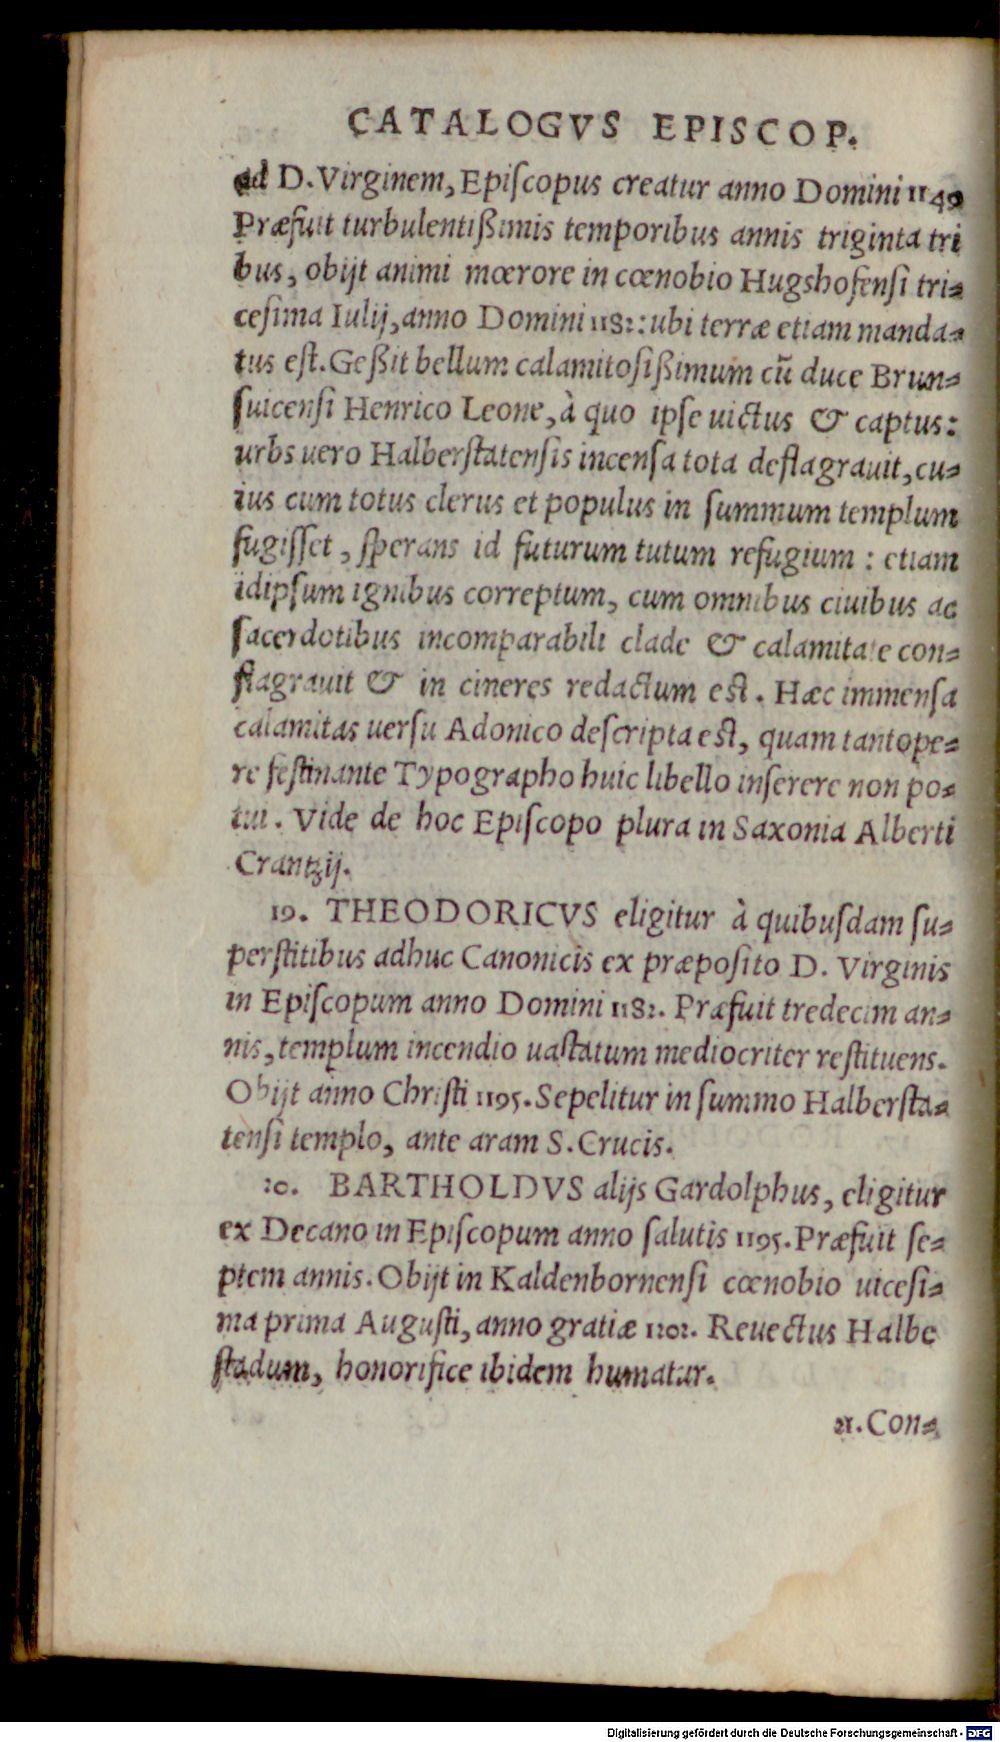 CATALOGVS EPISCOP.
ad D. Virginem, Episcopus creatur anno Domini 1149
Præfuit turbulentißimis temporibus annis triginta tri
bus, obijt animi mœrore in cœnobio Hugshofensi tri-
cesima Iulij, anno Domini 1182: ubi terræ etiam manda-
tus est. Geßit bellum calamitosißimum cū duce Brun-
suicensi Henrico Leone, à quo ipse uictus & captus:
urbs uero Halberstatensis incensa tota deflagrauit, cu-
ius cum totus clerus et populus in summum templum
fugisset, sperans id futurum tutum refugium: etiam
idipsum ignibus correptum, cum omnibus ciuibus ac
sacerdotibus incomparabili clade & calamitate con-
flagrauit & in cineres redactum est. Hæc immensa
calamitas uersu Adonico descripta est, quam tantope-
re festinante Typographo huic libello inserere non po-
tui. Vide de hoc Episcopo plura in Saxonia Alberti
Crantzij.
19. THEODORICVS eligitur à quibusdam su-
perstitibus adhuc Canonicis ex præposito D. Virginis
in Episcopum anno Domini 1182. Præfuit tredecim an-
nis, templum incendio uastatum mediocriter restituens.
Obijt anno Christi 1195. Sepelitur in summo Halbersta-
tensi templo, ante aram S. Crucis.
20. BARTHOLDVS alijs Gardolphus, eligitur
ex Decano in Episcopum anno salutis 1195. Præfuit se-
ptem annis. Obijt in Kaldenbornensi cœnobio uicesi-
ma prima Augusti, anno gratiæ 1202. Reuectus Halbe
stadum, honorifice ibidem humatur.
21. Con-
Digitalisierung gefördert durch die Deutsche Forschungsgemeinschaft - DFG